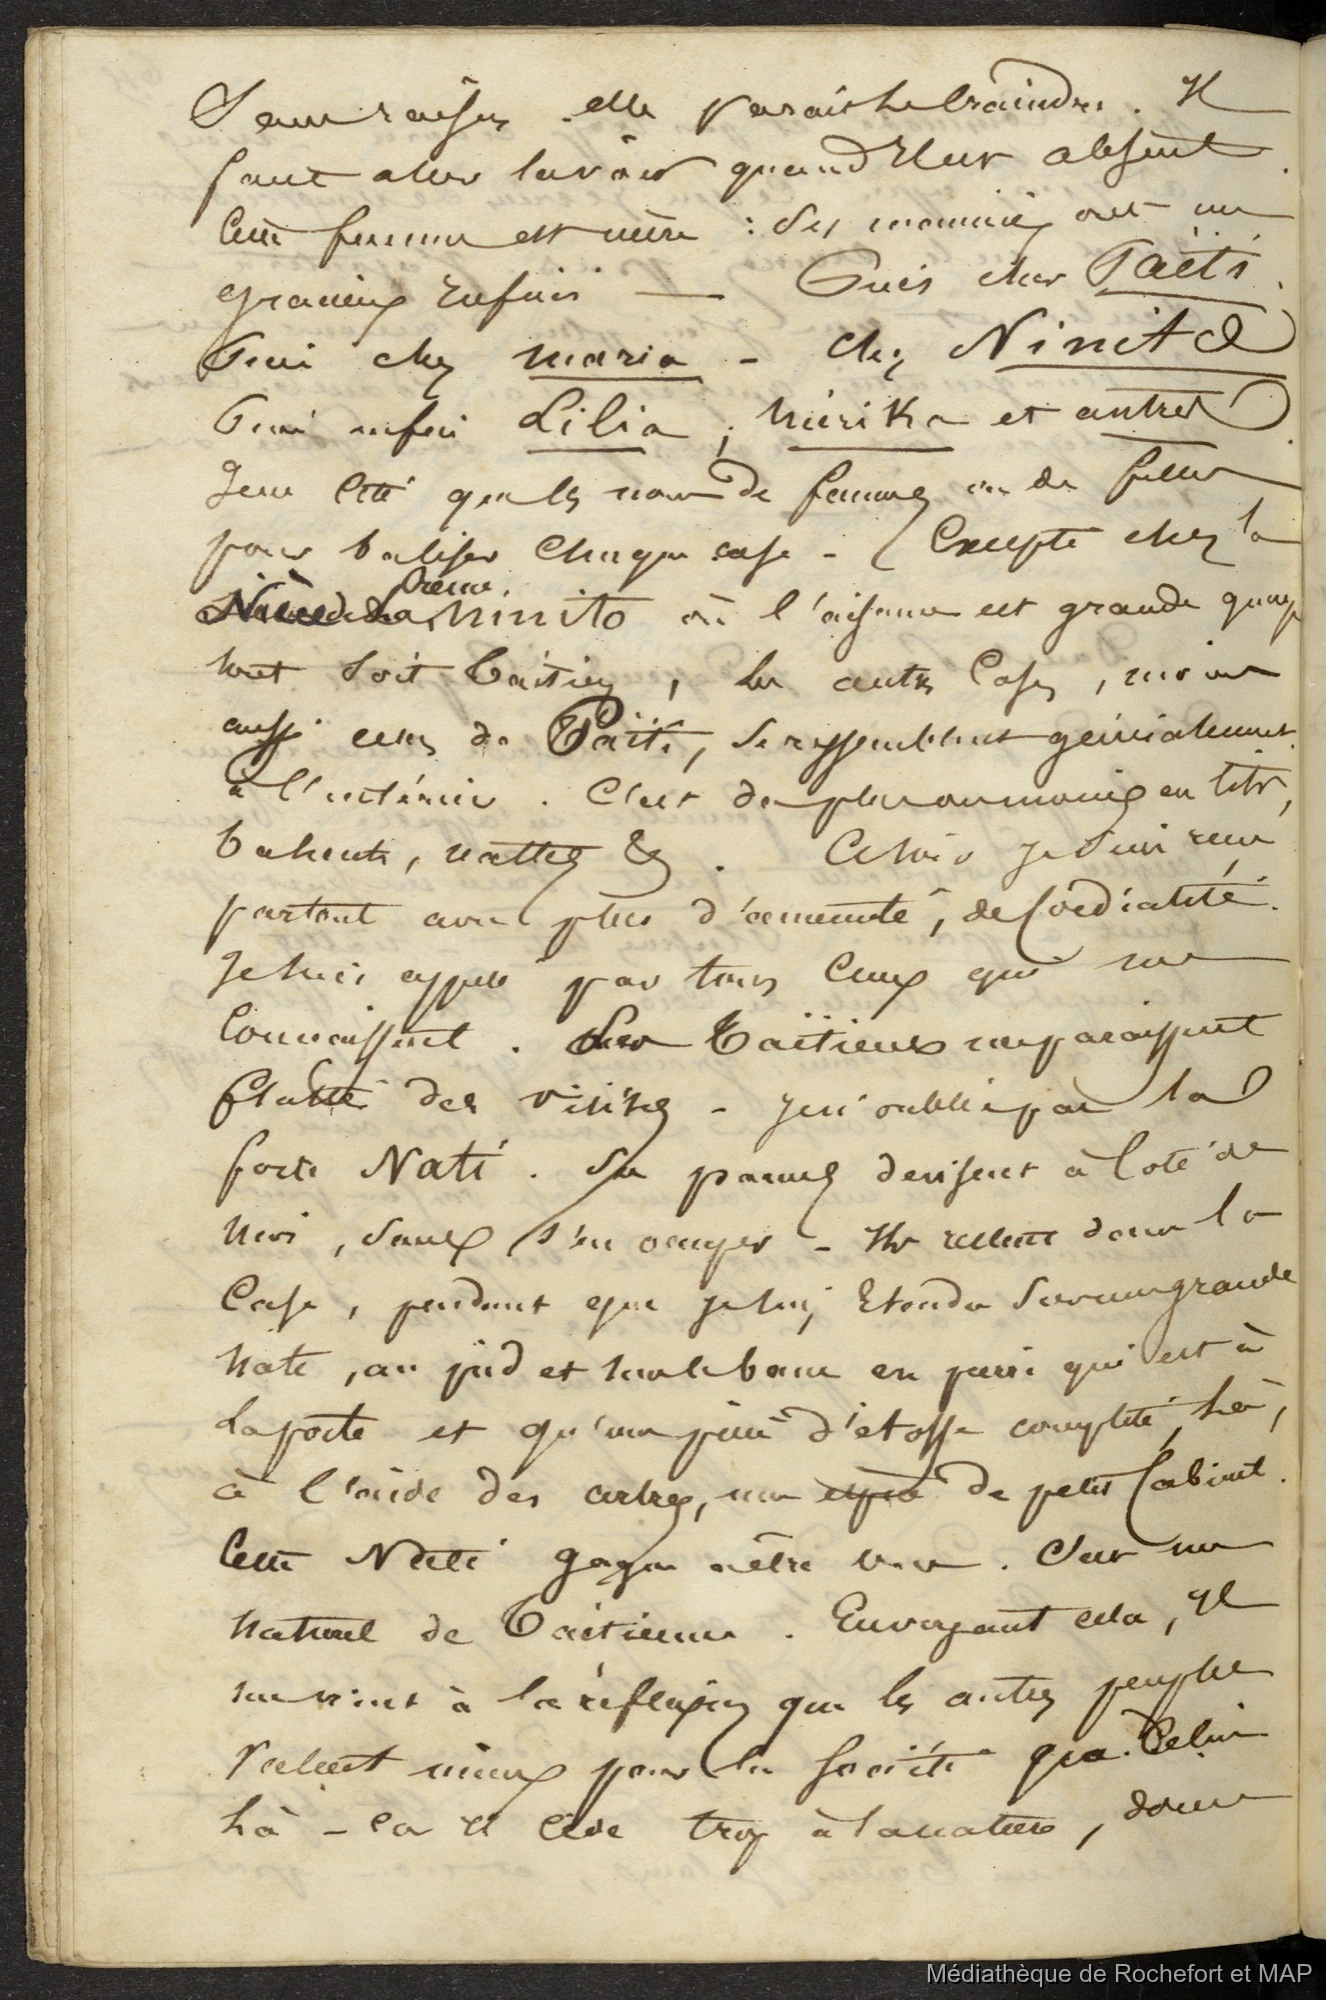 Sans raison elle paraît le craindre. Il
faut aller la voir quand il est absent.
Cette femme est mère : ses manières ont un
gracieux infini — Puis chez Païti.
Puis chez maria - chez Ninita
Puis enfin Lilia, Mirika et autres
Je ne cite que les noms de femmes ou de filles
pour baliser chaque case - Excepté chez la
Ninito où l'aisance est grande quoique
tout soit Taïtien, les autres cases, moins
aussi celle de Païti, se ressemblent généralement
à l'intérieur. C'est de plus ou moins en lits,
bahuts, nattes &. Ce soir je suis reçu
partout avec plus d'aménité, de cordialité.
Je suis appelé par tous ceux qui me
connaissent. Les Taïtiens me paraissent
flattés des visites - Je n'oublie pas la
forte Nati. Ses parents devisent à côté de
moi, sans s'en occuper - Ils restent dans la
case, pendant que je suis étendu sur une grande
natte, au pied et sur le banc en pierre qui est à
la porte et qu'une pièce d'étoffe complète, là,
à l'aide des arbres, une espèce de petit cabinet.
Cette Nati gagne à être vue. C'est un
naturel de Taïtienne. En voyant cela, il
me vient à la réflexion que les autres peuples
valent mieux pour la société que celui
là - car il cède trop à la nature, donne